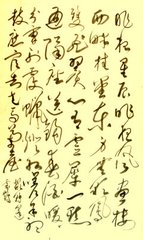 昨夜星辰昨夜風畫樓
西畔桂堂東身無彩鳳
雙飛翼心有靈犀一點
通隔座送鉤春酒暖
分曹射覆蠟燈紅嗟余聽
鼓應官去走馬蘭臺